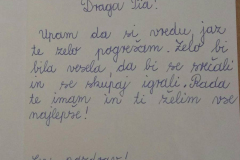 Draga Pia!
Upam da si vredu, jaz
te zelo pogrešam. Želo bi
bila vesela, da bi se srečali
in se skupaj igrali. Rada
te imam in ti želim vse
najlepše!